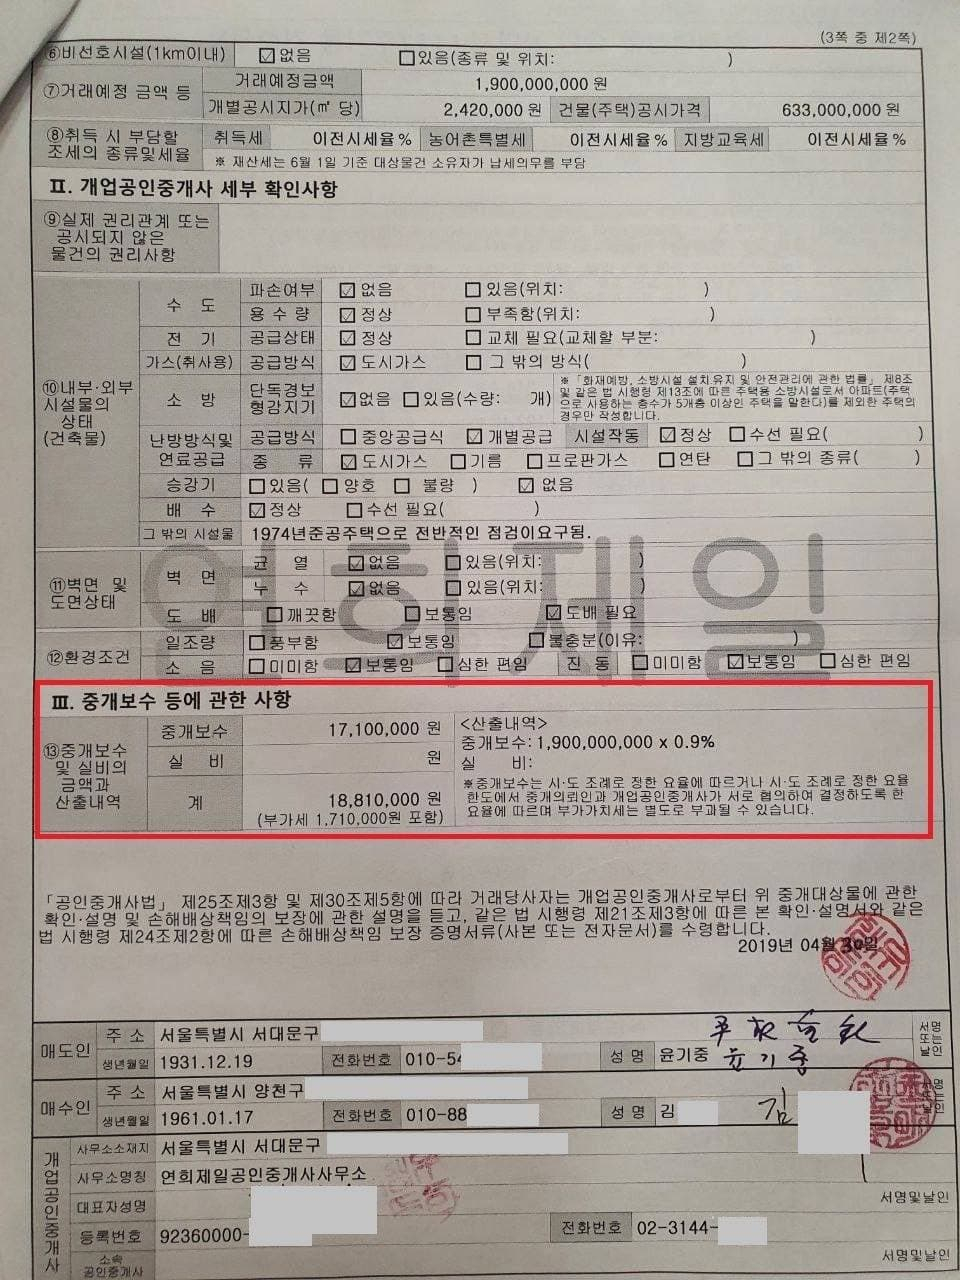 (3쪽 중 제2쪽)
⑥비선호시설(1km이내) ☑없음 □있음(종류 및 위치: )
⑦거래예정 금액 등 거래예정금액 1,900,000,000 원
개별공시지가(㎡ 당) 2,420,000 원 건물(주택)공시가격 633,000,000 원
⑧취득 시 부담할 조세의 종류및세율 취득세 이전시세율 % 농어촌특별세 이전시세율 % 지방교육세 이전시세율 %
※ 재산세는 6월 1일 기준 대상물건 소유자가 납세의무를 부담
Ⅱ. 개업공인중개사 세부 확인사항
⑨실제 권리관계 또는
공시되지 않은
물건의 권리사항
⑩내부·외부 시설물의 상태 (건축물)
수 도 파손여부 ☑없음 □있음(위치: )
용 수 량 ☑정상 □부족함(위치: )
전 기 공급상태 ☑정상 □교체 필요(교체할 부분: )
가스(취사용) 공급방식 ☑도시가스 □그 밖의 방식( )
소 방 단독경보형감지기 ☑없음 □있음(수량: 개)
※「화재예방, 소방시설 설치.유지 및 안전관리에 관한 법률」 제8조
및 같은 법 시행령 제13조에 따른 주택용 소방시설로서 아파트(주택
으로 사용하는 층수가 5개층 이상인 주택을 말한다)를 제외한 주택의
경우만 작성합니다.
난방방식및 연료공급 공급방식 □중앙공급식 ☑개별공급 시설작동 ☑정상 □수선 필요( )
종 류 ☑도시가스 □기름 □프로판가스 □연탄 □그 밖의 종류( )
승강기 □있음( □양호 □불량 ) ☑없음
배 수 ☑정상 □수선 필요( )
그 밖의 시설물 1974년준공주택으로 전반적인 점검이요구됨.
연희제일
⑪벽면 및 도면상태
벽 면 균 열 ☑없음 □있음(위치: )
누 수 ☑없음 □있음(위치: )
도 배 □깨끗함 □보통임 ☑도배 필요
⑫환경조건 일조량 □풍부함 ☑보통임 □불충분(이유: )
소 음 □미미함 ☑보통임 □심한 편임 진 동 □미미함 ☑보통임 □심한 편임
Ⅲ. 중개보수 등에 관한 사항
⑬중개보수 및 실비의 금액과 산출내역
중개보수 17,100,000 원
실 비 원
계 18,810,000 원
(부가세 1,710,000원 포함)
<산출내역>
중개보수: 1,900,000,000 x 0.9%
실 비:
※중개보수는 시·도 조례로 정한 요율에 따르거나 시·도 조례로 정한 요율
한도에서 중개의뢰인과 개업공인중개사가 서로 협의하여 결정하도록 한
요율에 따르며 부가가치세는 별도로 부과될 수 있습니다.
「공인중개사법」 제25조제3항 및 제30조제5항에 따라 거래당사자는 개업공인중개사로부터 위 중개대상물에 관한
확인·설명 및 손해배상책임의 보장에 관한 설명을 듣고, 같은 법 시행령 제21조제3항에 따른 본 확인·설명서와 같은
법 시행령 제24조제2항에 따른 손해배상책임 보장 증명서류(사본 또는 전자문서)를 수령합니다.
2019년 04월 30일
매도인 주 소 서울특별시 서대문구 서명 또는 날인
생년월일 1931.12.19 전화번호 010-54 성 명 윤기중 윤기중
매수인 주 소 서울특별시 양천구 서명 또는 날인
생년월일 1961.01.17 전화번호 010-88 성 명 김 김
개업공인중개사 사무소소재지 서울특별시 서대문구
사무소명칭 연희제일공인중개사사무소
대표자성명 서명및날인
등록번호 92360000- 전화번호 02-3144-
소속 공인중개사 서명및날인